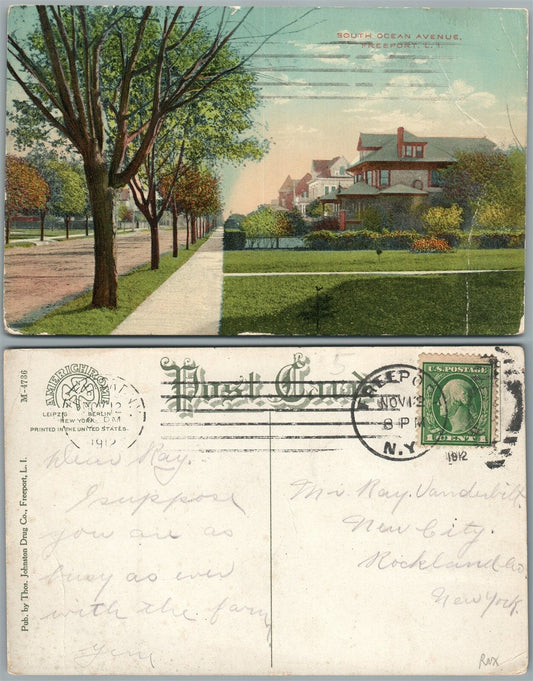 SOUTH OCEAN AVENUE,
FREEPORT, L. I.
M-4736
AMERICHROME
LEIPZIG BERLIN
NEW YORK
PRINTED IN THE UNITED STATES.
1912
Post Card
FREEPORT
NOV 12
8 PM
N.Y.
1912
U.S. POSTAGE
1 CENT 1
Pub. by Thos. Johnston Drug Co., Freeport, L. I.
Dear Ray.
I suppose
you are as
busy as ever
with the farm
Mr. Ray. Vanderbilt
New City.
Rockland Co
New York.